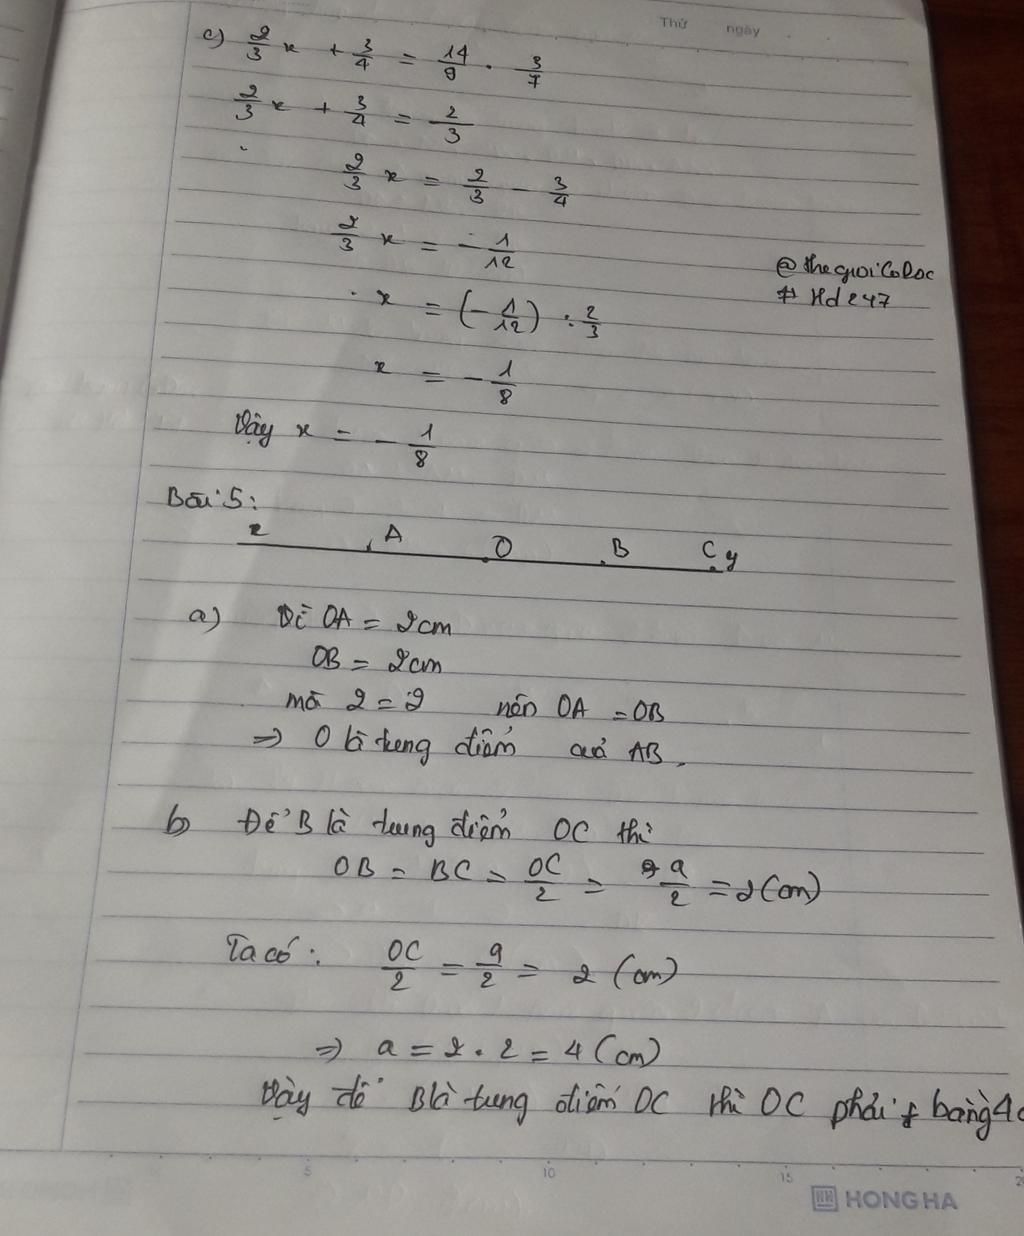 Thứ ngày
c) 2/3 x + 3/4 = 14/9 . 3/7
2/3 x + 3/4 = 2/3
2/3 x = 2/3 - 3/4
2/3 x = - 1/12
@thegioiCoDoc
# Hd247
x = (- 1/12) : 2/3
x = - 1/8
Vậy x = - 1/8
Bài 5:
x A O B C y
a) Vì OA = 2cm
OB = 2cm
mà 2 = 2 nên OA = OB
=> O là trung điểm của AB.
b) Để B là trung điểm OC thì
OB = BC = OC/2 = a/2 = 2 (cm)
Ta có: OC/2 = a/2 = 2 (cm)
=> a = 2 . 2 = 4 (cm)
Vậy để B là trung điểm OC thì OC phải bằng 4c
5 10 15
HONG HA